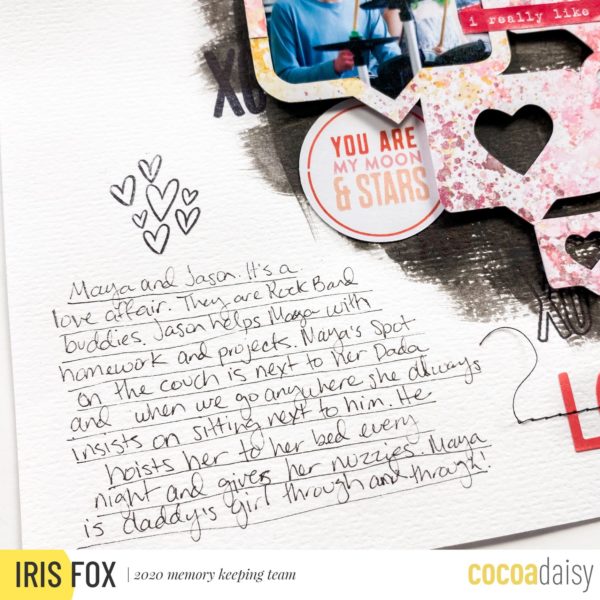 i really like
XO
YOU ARE
MY MOON
& STARS
Maya and Jason. It's a
love affair. They are Rock Band
buddies. Jason helps Maya with
homework and projects. Maya's Spot
on the couch is next to her Dada
and when we go anywhere she always
insists on sitting next to him. He
hoists her to her bed every
night and gives her nuzzies. Maya
is daddy's girl through and through!
XO
LO
IRIS FOX | 2020 memory keeping team
cocoadaisy